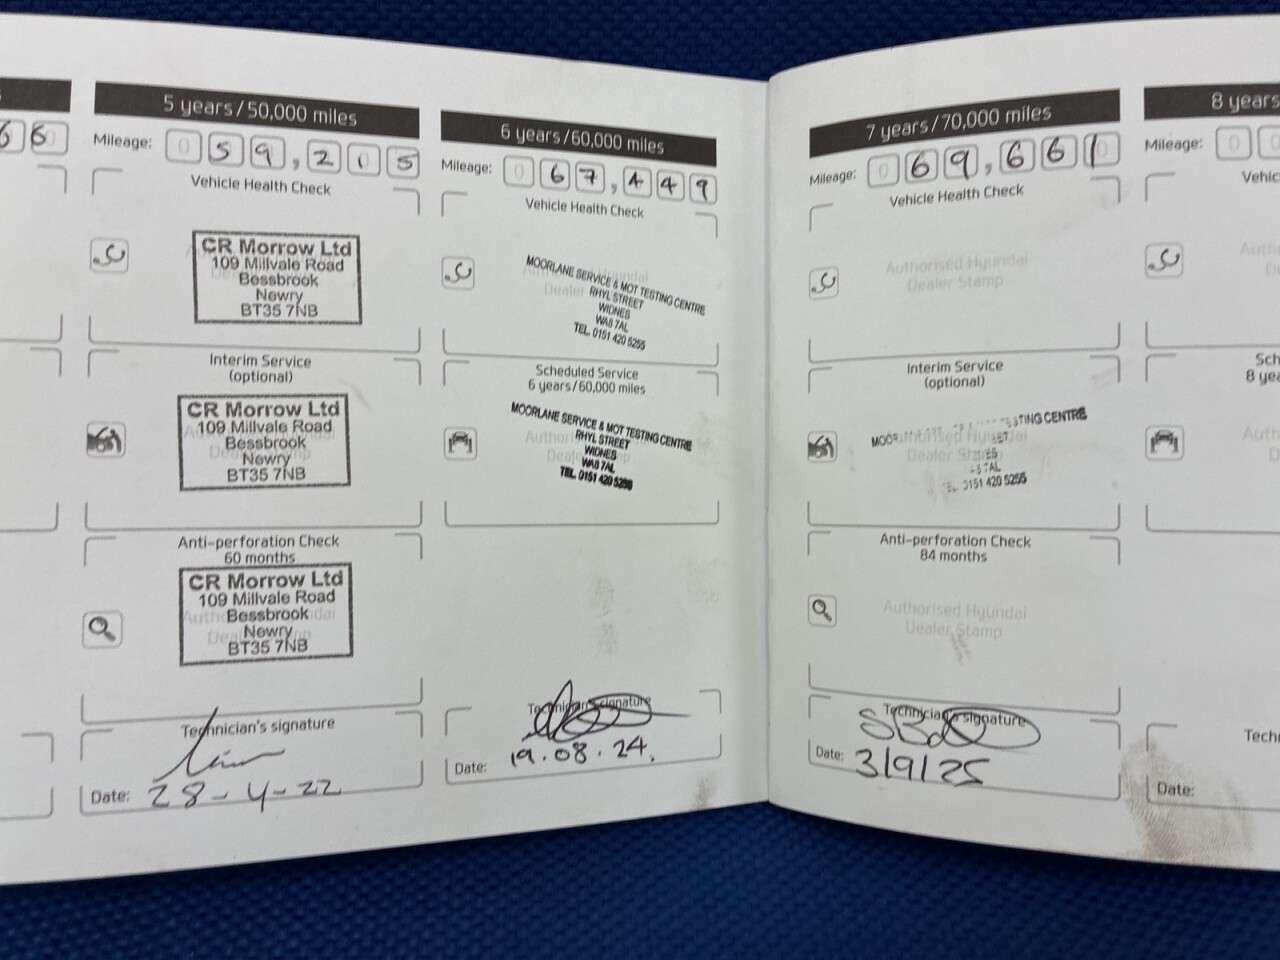 66
5 years/50,000 miles
Mileage: 0 59,215
Vehicle Health Check
CR Morrow Ltd
109 Millvale Road
Bessbrook
Newry
BT35 7NB
Interim Service
(optional)
CR Morrow Ltd
109 Millvale Road
Bessbrook
Newry
BT35 7NB
Anti-perforation Check
60 months
CR Morrow Ltd
109 Millvale Road
Bessbrook
Newry
BT35 7NB
Technician's signature
Date: 28-4-22
6 years/60,000 miles
Mileage: 0 67,449
Vehicle Health Check
MOORLANE SERVICE & MOT TESTING CENTRE
RHYL STREET
WIDNES
WA8 7AL
TEL. 0151 420 5255
Scheduled Service
6 years/60,000 miles
MOORLANE SERVICE & MOT TESTING CENTRE
RHYL STREET
WIDNES
WA8 7AL
TEL. 0151 420 5255
Technician's signature
Date: 19.08.24.
7 years/70,000 miles
Mileage: 0 69,661
Vehicle Health Check
Authorised Hyundai
Dealer Stamp
Interim Service
(optional)
Authorised Hyundai
Dealer Stamp
TESTING CENTRE
TEL. 0151 420 5255
Anti-perforation Check
84 months
Authorised Hyundai
Dealer Stamp
Technician's signature
Date: 3/9/25
8 years
Mileage: 0
Vehic
Sch
8 yea
Techn
Date: